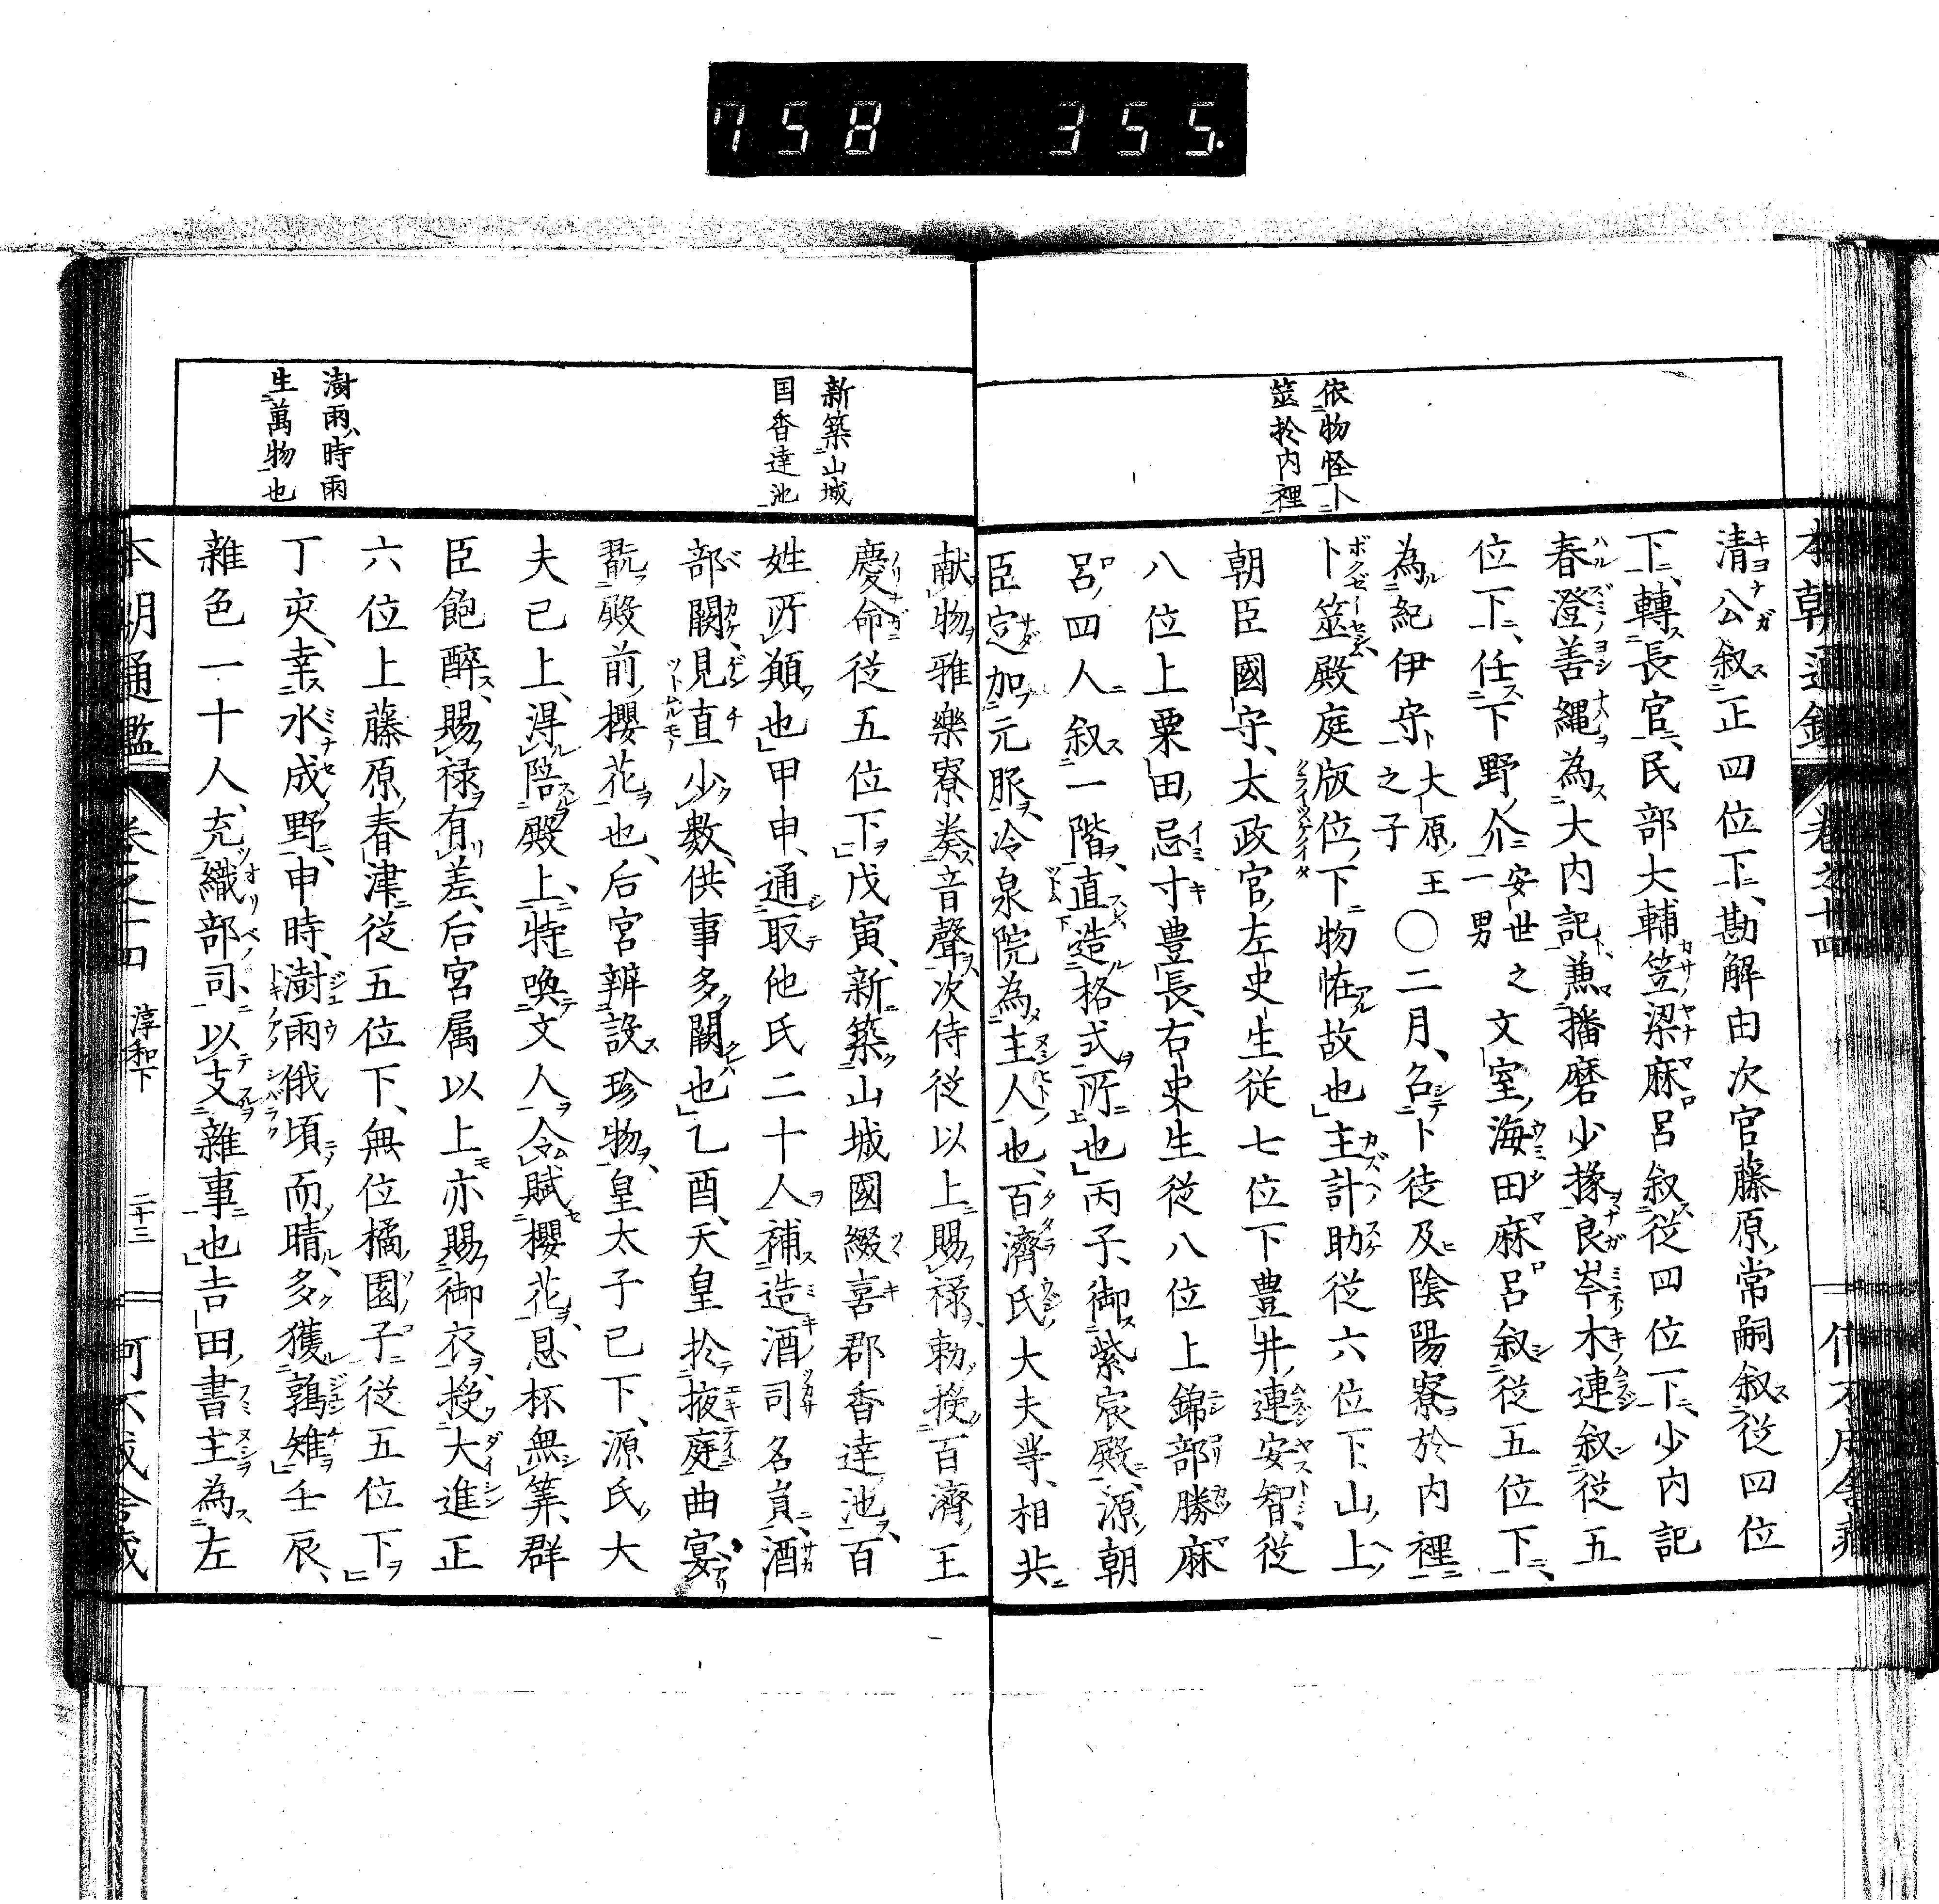 758 355.
依物怪卜
筮於内裡
清公叙正四位下、勘解由次官藤原常嗣叙従四位
下、轉長官、民部大輔笠梁麻呂叙従四位下、少内記
春澄善縄為大内記、兼播磨少掾、良岑木連叙従五
位下、任下野介安世之二男文室海田麻呂叙従五位下、
為紀伊守大原王之子○二月、召卜徒及陰陽寮於内裡
卜筮殿庭版位下物恠故也」主計助従六位下、山上
朝臣國守、太政官左史生従七位下豊井連安智、従
八位上粟田忌寸豊長、右史生従八位上錦部勝麻
呂、四人叙一階、直造格式所也」丙子、御紫宸殿、源朝
臣定加元服、冷泉院為主人也、百濟氏大夫等、相共
献物雅樂寮奏音聲、次侍従以上賜禄、勅授百濟王
慶命従五位下」戊寅、新築山城國綴喜郡香達池、百
姓所願也」甲申、通取他氏二十人補造酒司名負酒
部闕、見直少數、供事多闕也」乙酉、天皇於掖庭曲宴
翫殿前櫻花也、后宮辨設珍物、皇太子已下、源氏大
夫已上、得陪殿上、特喚文人令賦櫻花、息杯無筭、群
臣飽醉、賜禄有差、后宮属以上亦賜御衣、授大進正
六位上藤原春津従五位下、無位橘園子従五位下」
丁亥、幸水成野、申時、澍雨俄頃而晴、多獲鶉雉」壬辰、
雜色一十人、充織部司、以支雜事也」吉田書主為左
新築山城
国香達池
澍雨時雨
生萬物也
本朝通鑑 卷之十四 淳和下 二十三